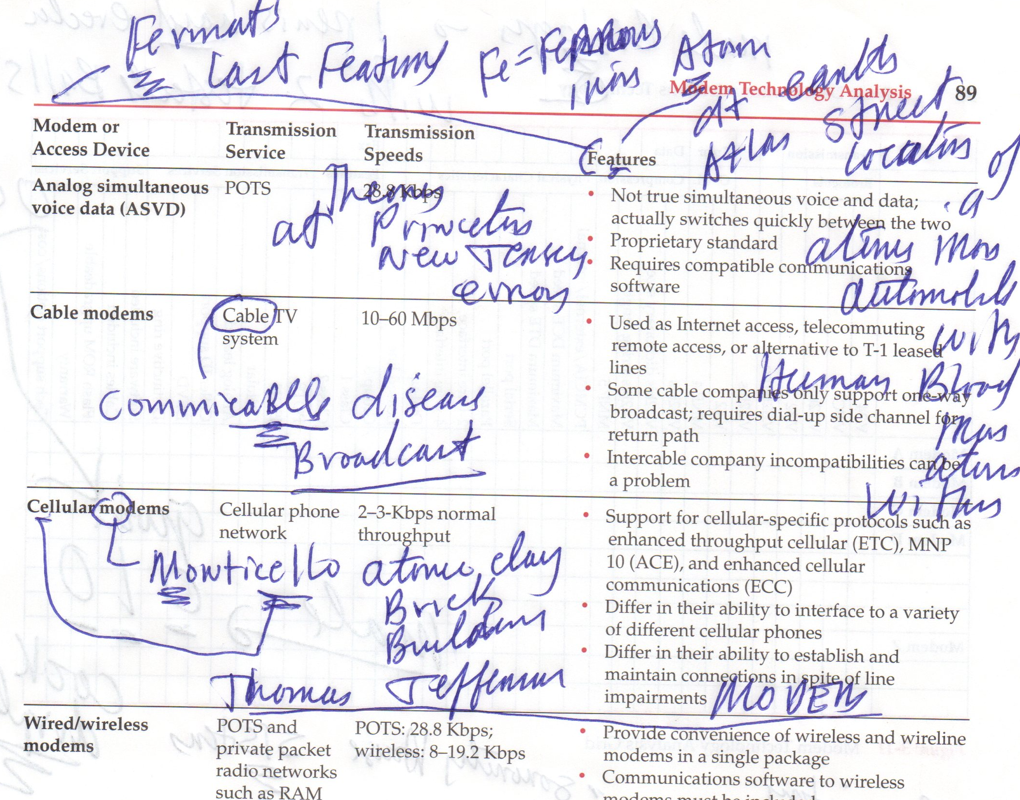 Fermats
Last Featury Fe=
Atom
Modem Technology Analysis 89
At earths
Atlas street
location of
a
Modem or Transmission Transmission
Access Device Service Speeds Features
Analog simultaneous POTS 28.8 Kbps
voice data (ASVD)
• Not true simultaneous voice and data;
actually switches quickly between the two
• Proprietary standard
• Requires compatible communications
software
at
New Jersey
errors
automobile
with
Human Blood
with
Cable modems Cable TV 10–60 Mbps
system
• Used as Internet access, telecommuting
remote access, or alternative to T-1 leased
lines
• Some cable companies only support one-way
broadcast; requires dial-up side channel for
return path
• Intercable company incompatibilities can be
a problem
disease
Broadcast
Cellular modems Cellular phone 2–3-Kbps normal
network throughput
• Support for cellular-specific protocols such as
enhanced throughput cellular (ETC), MNP
10 (ACE), and enhanced cellular
communications (ECC)
• Differ in their ability to interface to a variety
of different cellular phones
• Differ in their ability to establish and
maintain connections in spite of line
impairments
Monticello atomic clay
Brick
Building
Thomas Jefferson MODEM
Wired/wireless POTS and POTS: 28.8 Kbps;
modems private packet wireless: 8–19.2 Kbps
radio networks
such as RAM
• Provide convenience of wireless and wireline
modems in a single package
• Communications software to wireless
modems must be included